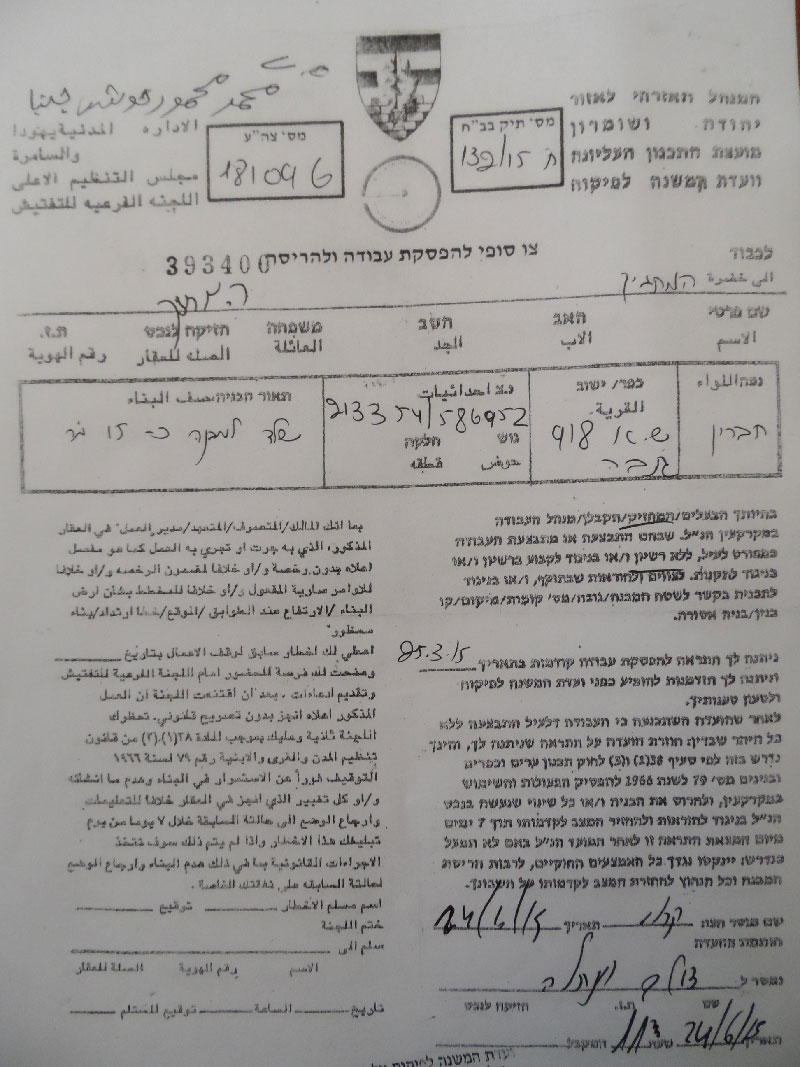 محمد محمود
המנהל האזרחי לאזור
יהודה ושומרון
מועצת התכנון העליונה
וועדת המשנה לפיקוח
מס' תיק בב"ח
ח 132/15
מס' צה"ע
181096
الادارة المدنية يهودا
والسامرة
مجلس التنظيم الاعلى
اللجنة الفرعية للتفتيش
צו סופי להפסקת עבודה ולהריסה
393400
לכבוד
الى حضرة המחזיק
שם פרטי האב הסב משפחה חזיקה לנכס ת.ז.
الاسم الاب الجد العائلة الصلة للعقار رقم الهوية
נפה اللواء
חברון
כפר/ישוב القرية
ש.א 918
נ.צ احداثيات
213354/586952
גוש חלקה
حوض قطعة
תאור הבניה وصف البناء
שלד למבנה כ- 15 מ"ר
בהיותך הבעלים/המחזיק/הקבלן/מנהל העבודה
במקרקעין הנ"ל, שבהם התבצעה או מתבצעת העבודה
כמפורט לעיל, ללא רשיון ו/או בניגוד לקבוע ברשיון ו/או
בניגוד לתקנות, לצווים ולהוראות שבתוקף, ו/או בניגוד
לתכנית בקשר לשטח המבנה/גובה/מס' קומות/מיקום/קו
בנין/בניה אסורה.
ניתנה לך התראה להפסקת עבודה קודמת בתאריך 25.3.15
וניתנה לך הזדמנות להופיע בפני ועדת המשנה לפיקוח
ולטעון טענותיך.
לאחר שהועדה השתכנעה כי העבודה דלעיל התבצעה ללא
כל היתר שבדין, חוזרת הועדה על התראה שניתנה לך, והינך
נדרש בזה לפי סעיף 38(1) (3) לחוק תכנון ערים וכפרים
ובנינים מס' 79 לשנת 1966 להפסיק הפעולות והשימוש
במקרקעין, ולהרוס את הבניה ו/או כל שינוי שנעשה בנכס
הנ"ל בניגוד להוראות ולהחזיר המצב לקדמותו תוך 7 ימים
מיום המצאת התראה זו לאחר המועד הנ"ל באם לא תפעל
כנדרש, יינקטו נגדך כל האמצעים החוקיים, לרבות הריסת
המבנה וכל הנחוץ להחזרת המצב לקדמותו על חשבונך.
שם מוסר הצו תאריך 24/6/15
חותמת הועדה
נמסר ל
שם ת.ז. חזיקה לנכס
תאריך 24/6/15 שעה 113 המקבל
بما انك المالك/المتصرف/المتعهد/مدير العمل في العقار
المذكور، الذي به جرت او تجري به العمل كما هو مفصل
اعلاه بدون رخصة و/او خلافا لمضمون الرخصة و/او خلافا
للاوامر سارية المفعول و/او خلافا للمخطط بشأن ارض
البناء/الارتفاع عدد الطوابق/الموقع/خط ارتداد/بناء
محظور"
اعطي لك اخطار سابق لوقف الاعمال بتاريخ
ومنحت لك فرصة للحضور امام اللجنة الفرعية للتفتيش
وتقديم ادعاءات. بعد ان اقتنعت اللجنة ان العمل
المذكور اعلاه انجز بدون تصريح قانوني. تحظرك
اللجنة ثانية وعليك بموجب المادة ٣٨(١).(٣) من قانون
تنظيم المدن والقرى والابنية رقم ٧٩ لسنة ١٩٦٦
التوقيف فوراً عن الاستمرار في البناء وهدم ما انشأته
و/او كل تغيير الذي انجز في العقار خلافا للتعليمات
وارجاع الوضع الى حالته السابقة خلال ٧ يوما من يوم
تبليغك هذا الاخطار واذا لم يتم ذلك سوف تتخذ
الاجراءات القانونية بما في ذلك هدم البناء وارجاع الوضع
لحالته السابقة على نفقتك الخاصة.
اسم مسلم الاخطار توقيع
ختم اللجنة
سلم الى
الاسم رقم الهوية الصلة للعقار
تاريخ الساعة توقيع المستلم
ועדת המשנה לפיקוח